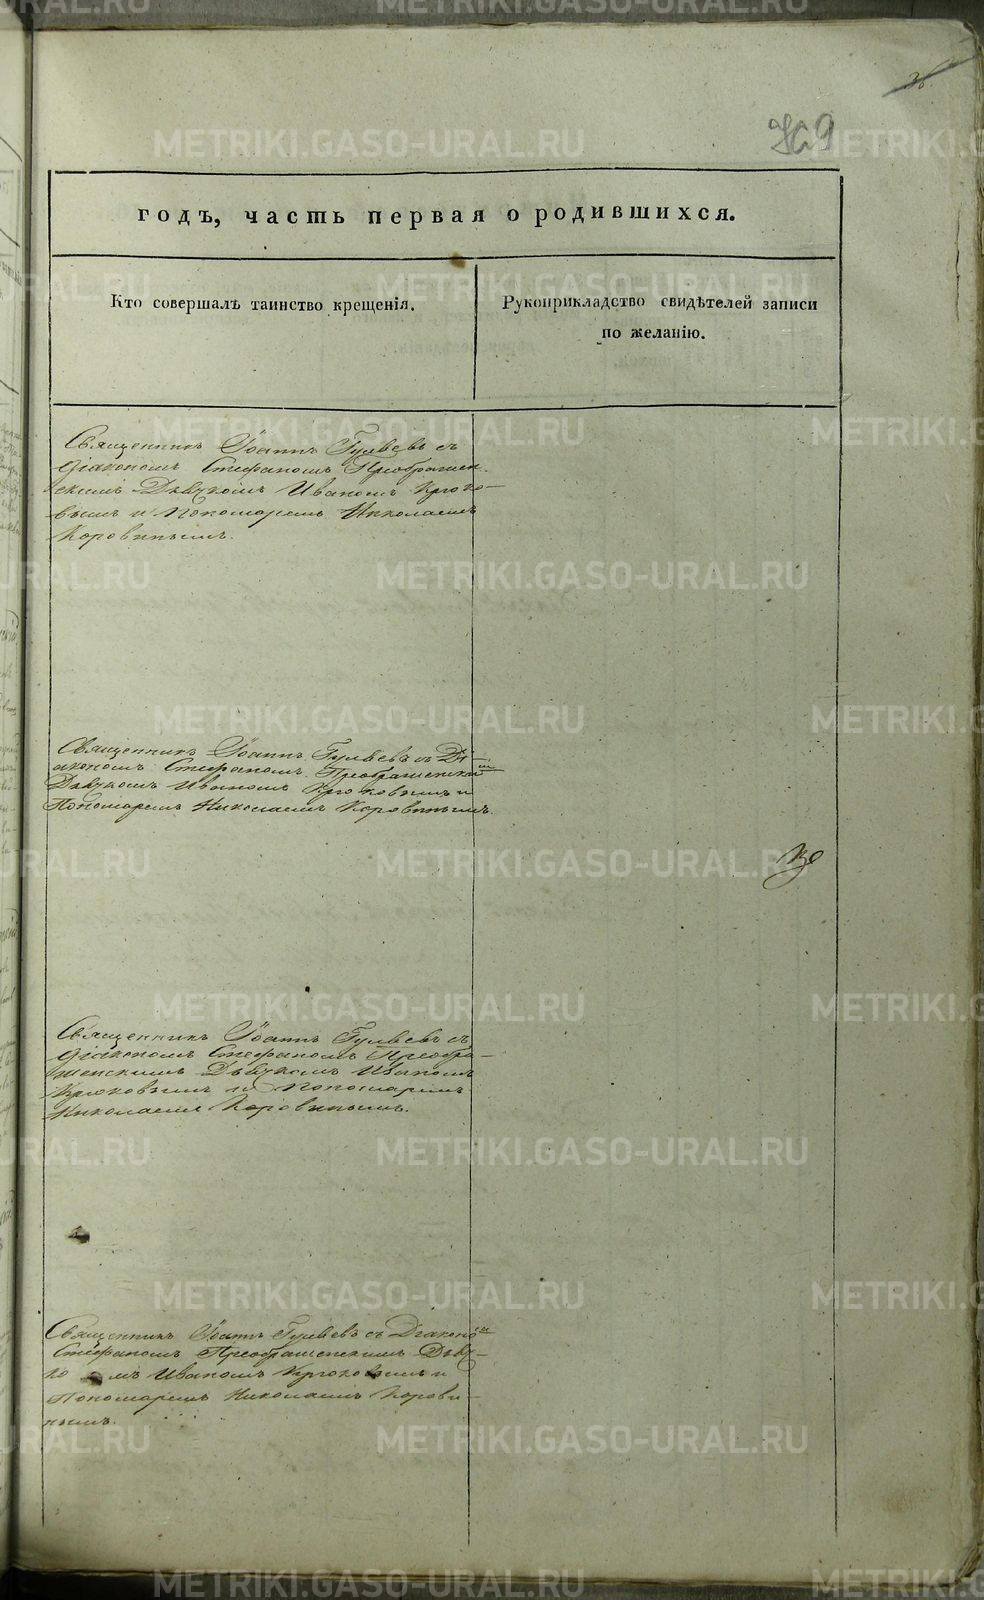 годъ, часть первая о родившихся.
Кто совершалъ таинство крещенія.
Рукоприкладство свидѣтелей записи
по желанію.
Священникъ Іоаннъ Гулѣевъ съ
діакономъ Стефаномъ Преображен-
скимъ Дьячкомъ Иваномъ Крюко-
вымъ и Пономаремъ Николаемъ
Коровинымъ.
Священникъ Іоаннъ Гулѣевъ съ Ді-
акономъ Стефаномъ Преображенскимъ
Дьячкомъ Иваномъ Крюковымъ и
Пономаремъ Николаемъ Коровинымъ.
Священникъ Іоаннъ Гулѣевъ съ
діакономъ Стефаномъ Преобра-
женскимъ Дьячкомъ Иваномъ
Крюковымъ и Пономаремъ
Николаемъ Коровинымъ.
Священникъ Іоаннъ Гулѣевъ съ Діакономъ
Стефаномъ Преображенскимъ Дьяч-
комъ Иваномъ Крюковымъ и
Пономаремъ Николаемъ Корови-
нымъ.
METRIKI.GASO-URAL.RU